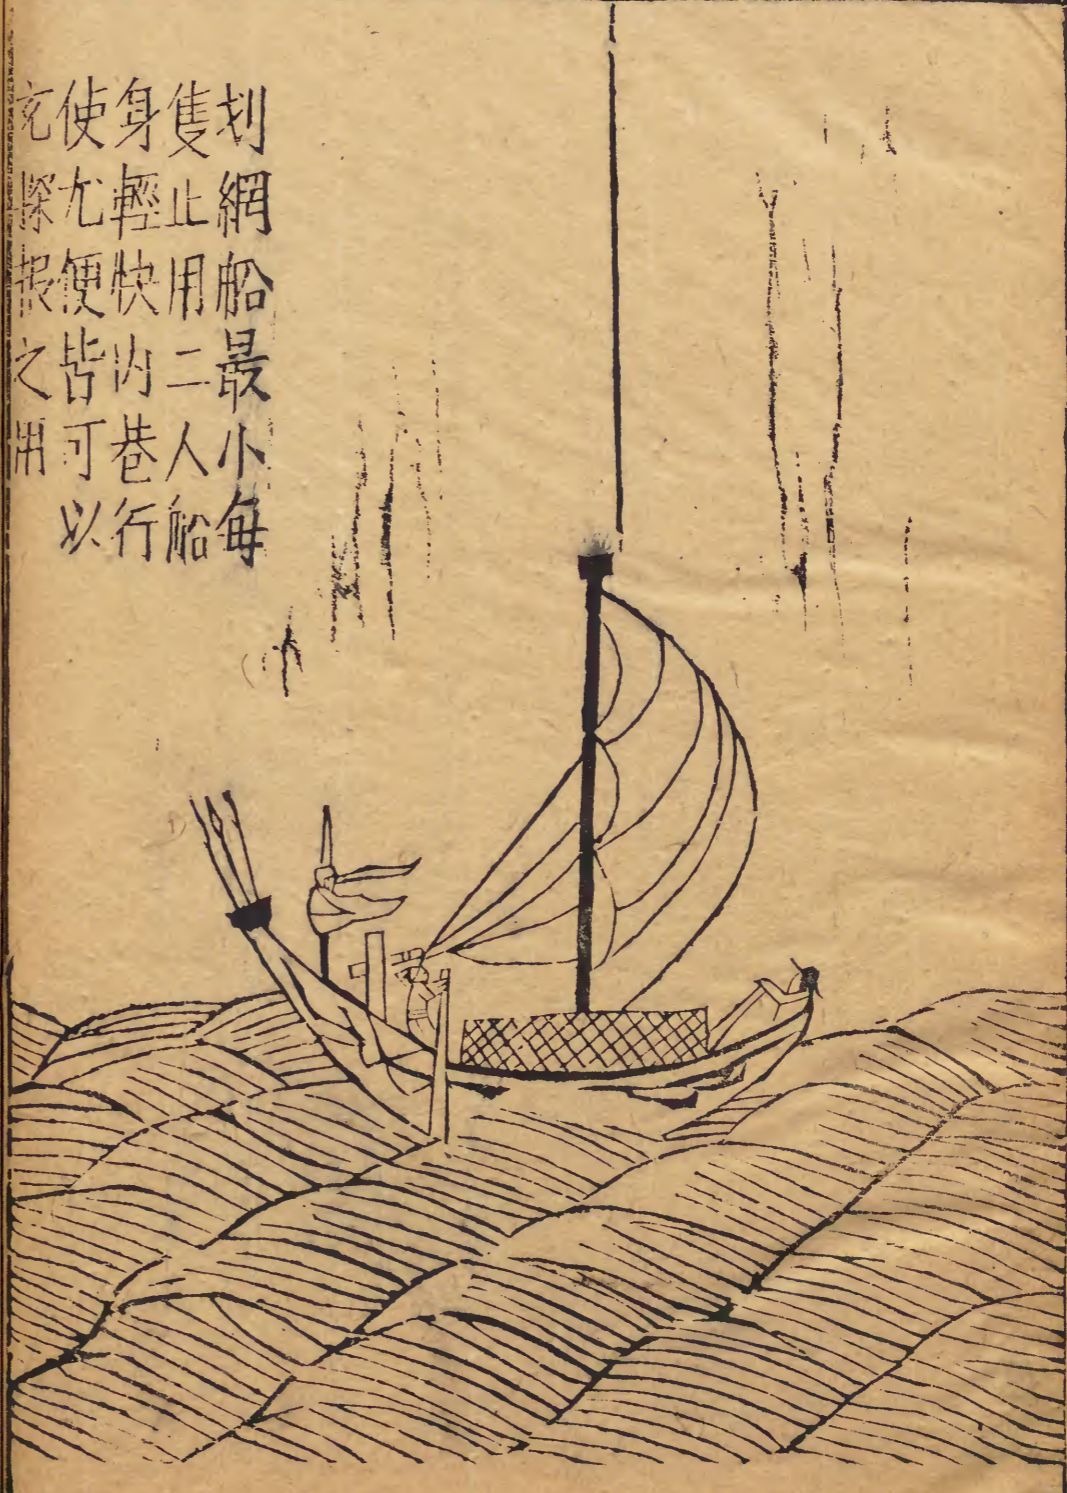 划網船最小每
隻止用二人船
身輕快内巷行
使尤便皆可以
充探报之用